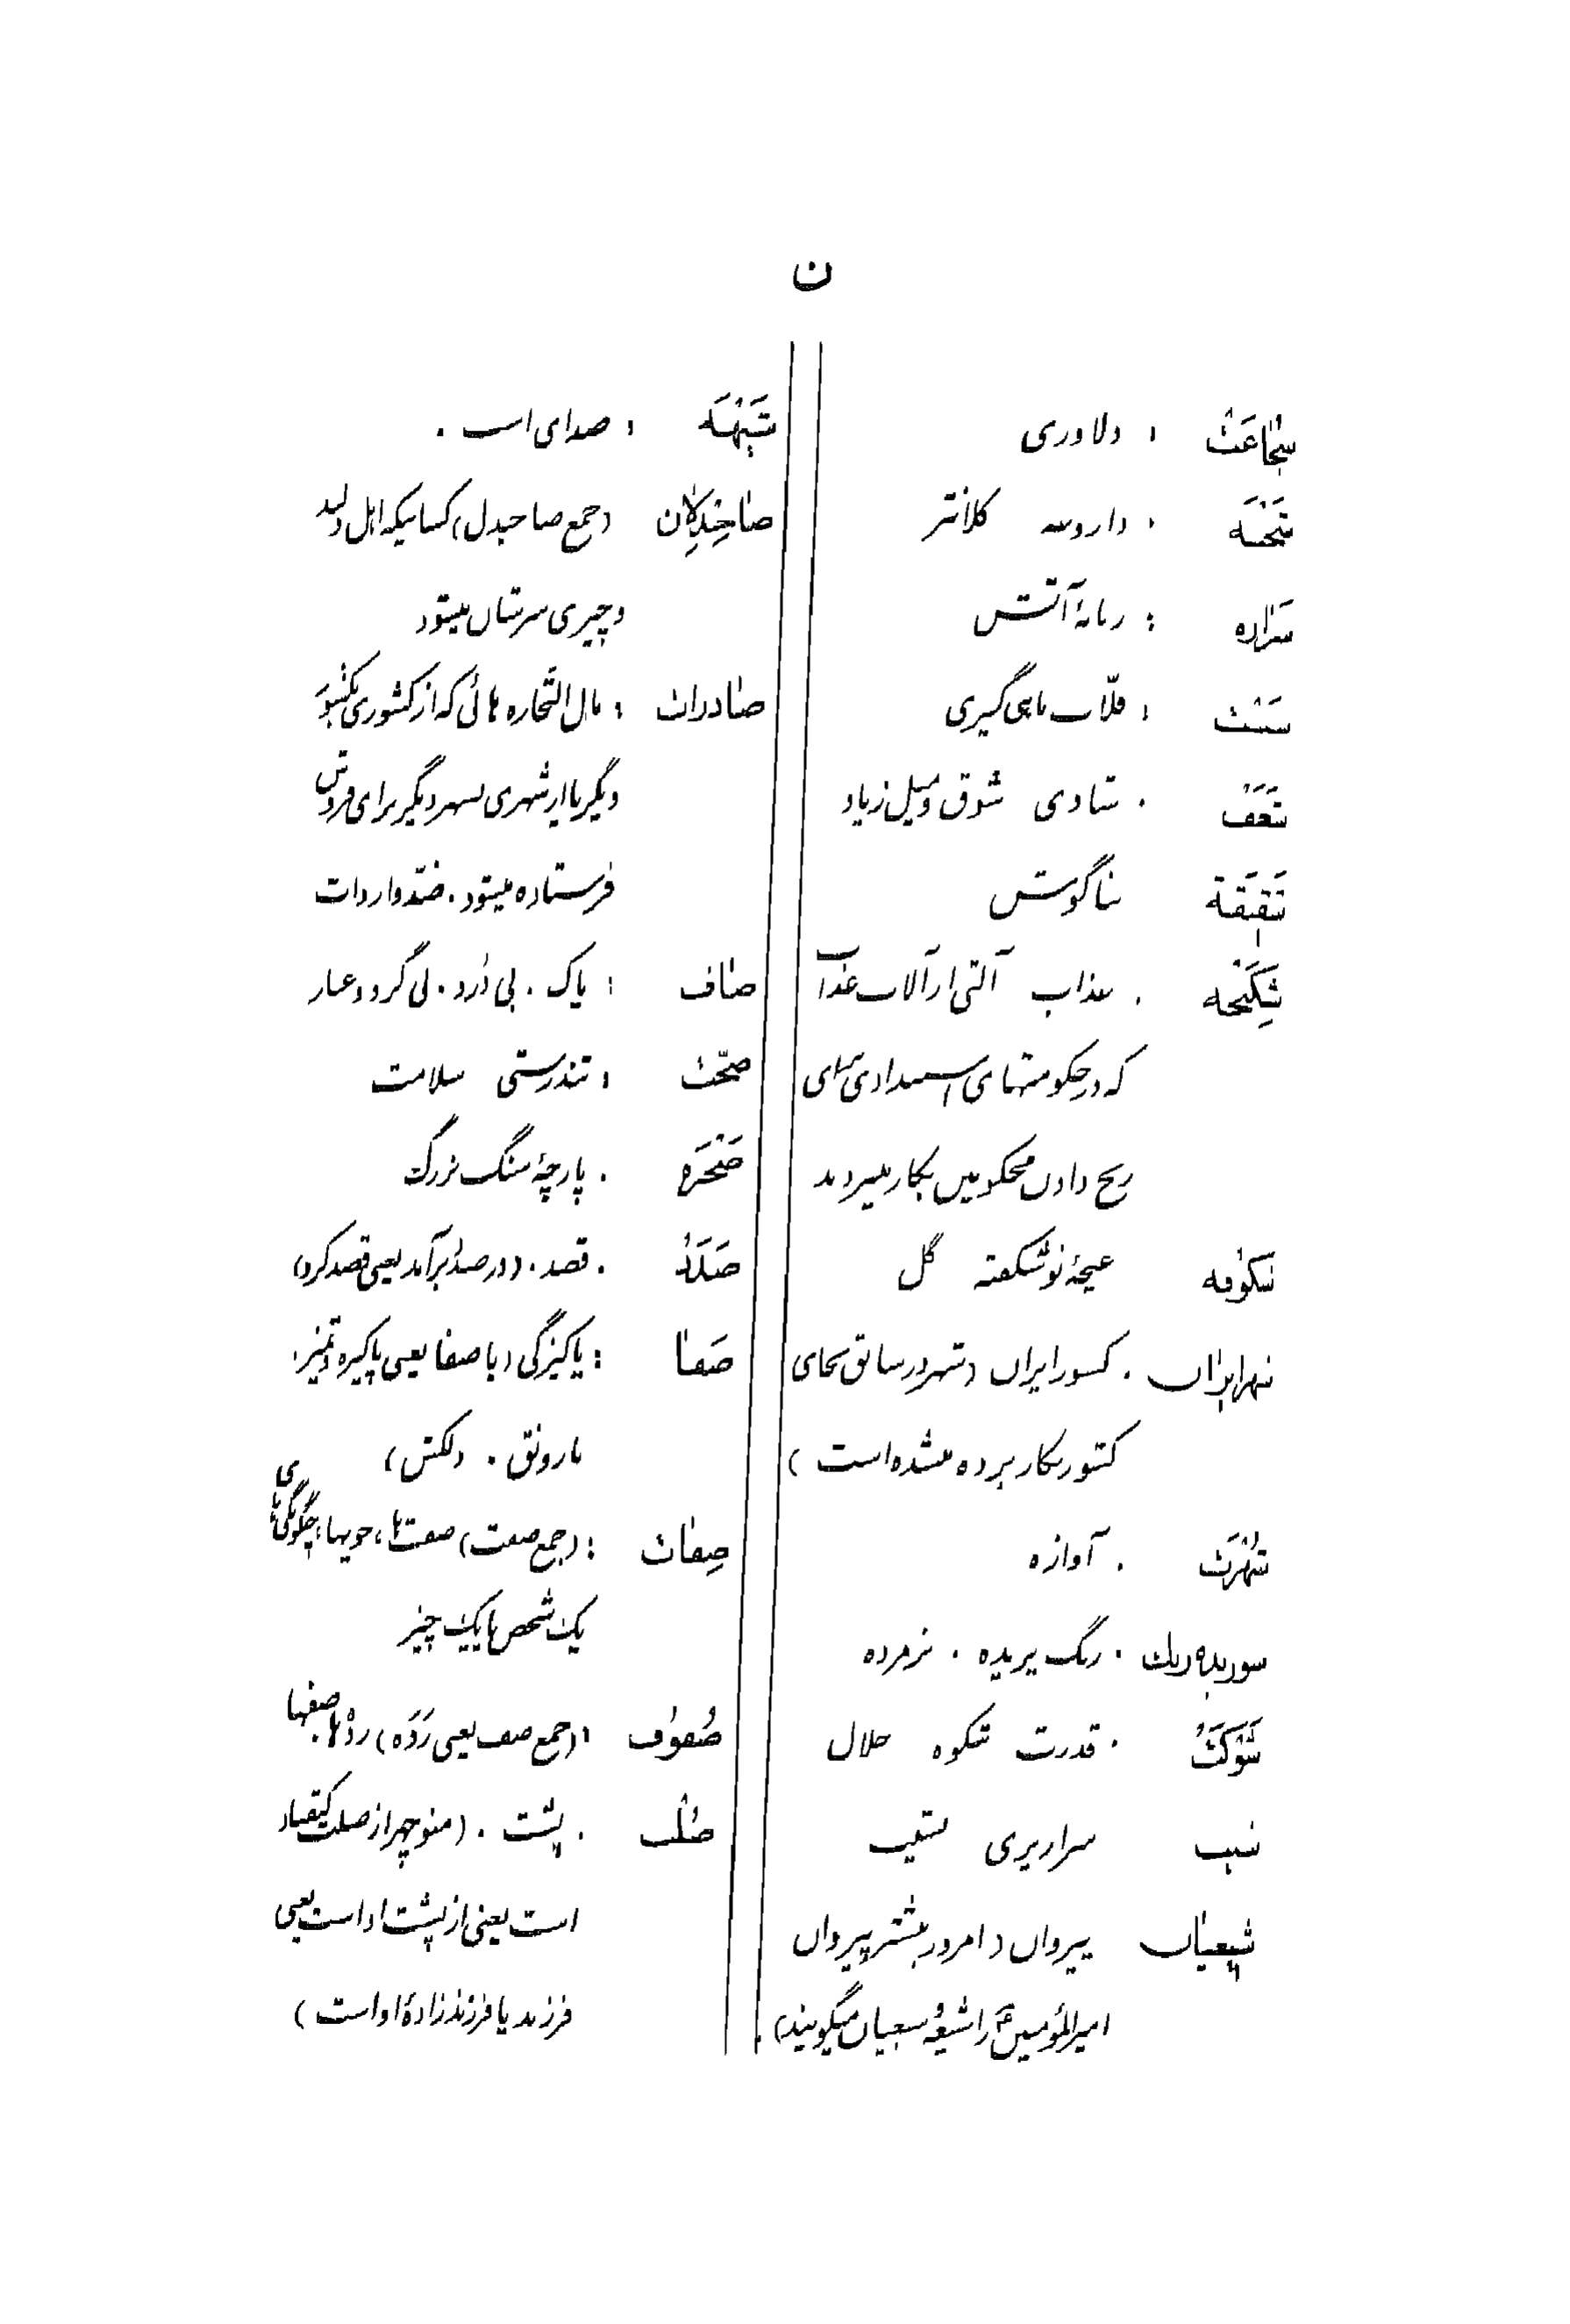 ن
شجاعت : دلاوری
شحنه : داروغه کلانتر
شراره : زبانهٔ آتش
شست : قلّاب ماهی‌گیری
شعف : شادی شوق و میل زیاد
شقیقة بناگوش
شکنجه : عذاب آلتی از آلات عذاب
که در حکومتهای استبدادی برای
رنج دادن محکومین بکار میبردند
شکوفه غنچهٔ نوشکفته گل
شهر ایران : کشور ایران (شهر در سابق بجای
کشور بکار برده میشده است)
شهرت : آوازه
شوریده رنگ : رنگ پریده . پژمرده
شوکت : قدرت شکوه جلال
شیب سرازیری نشیب
شیعیان پیروان (امروز بیشتر پیروان
امیرالمؤمنین را شیعه و شیعیان میگویند).
شیهه : صدای اسب .
صاحبدلان (جمع صاحبدل) کسانیکه اهل دلند
و چیزی سرشان میشود
صادرات : مال التجاره هائی که از کشوری بکشور
دیگر یا از شهری بشهر دیگر برای فروش
فرستاده میشود . ضدّ واردات
صاف : پاک . بی دُرد . بی گرد و غبار
صحّت : تندرستی سلامت
صخره : پارچهٔ سنگ بزرگ
صدد : قصد . (در صدد برآمد یعنی قصد کرد)
صفا : پاکیزگی (با صفا یعنی پاکیزه و تمیز،
با رونق . دلکش)
صفات : (جمع صفت) صفت‌ها، خوبیها، چگونگی‌های
یک شخص یا یک چیز
صفوف : (جمع صف یعنی رَدَه) رده‌ها . صفها
صلب : پشت . (منوچهر از صلب کیقباد
است یعنی از پشت او است یعنی
فرزند یا فرزندزادهٔ او است)